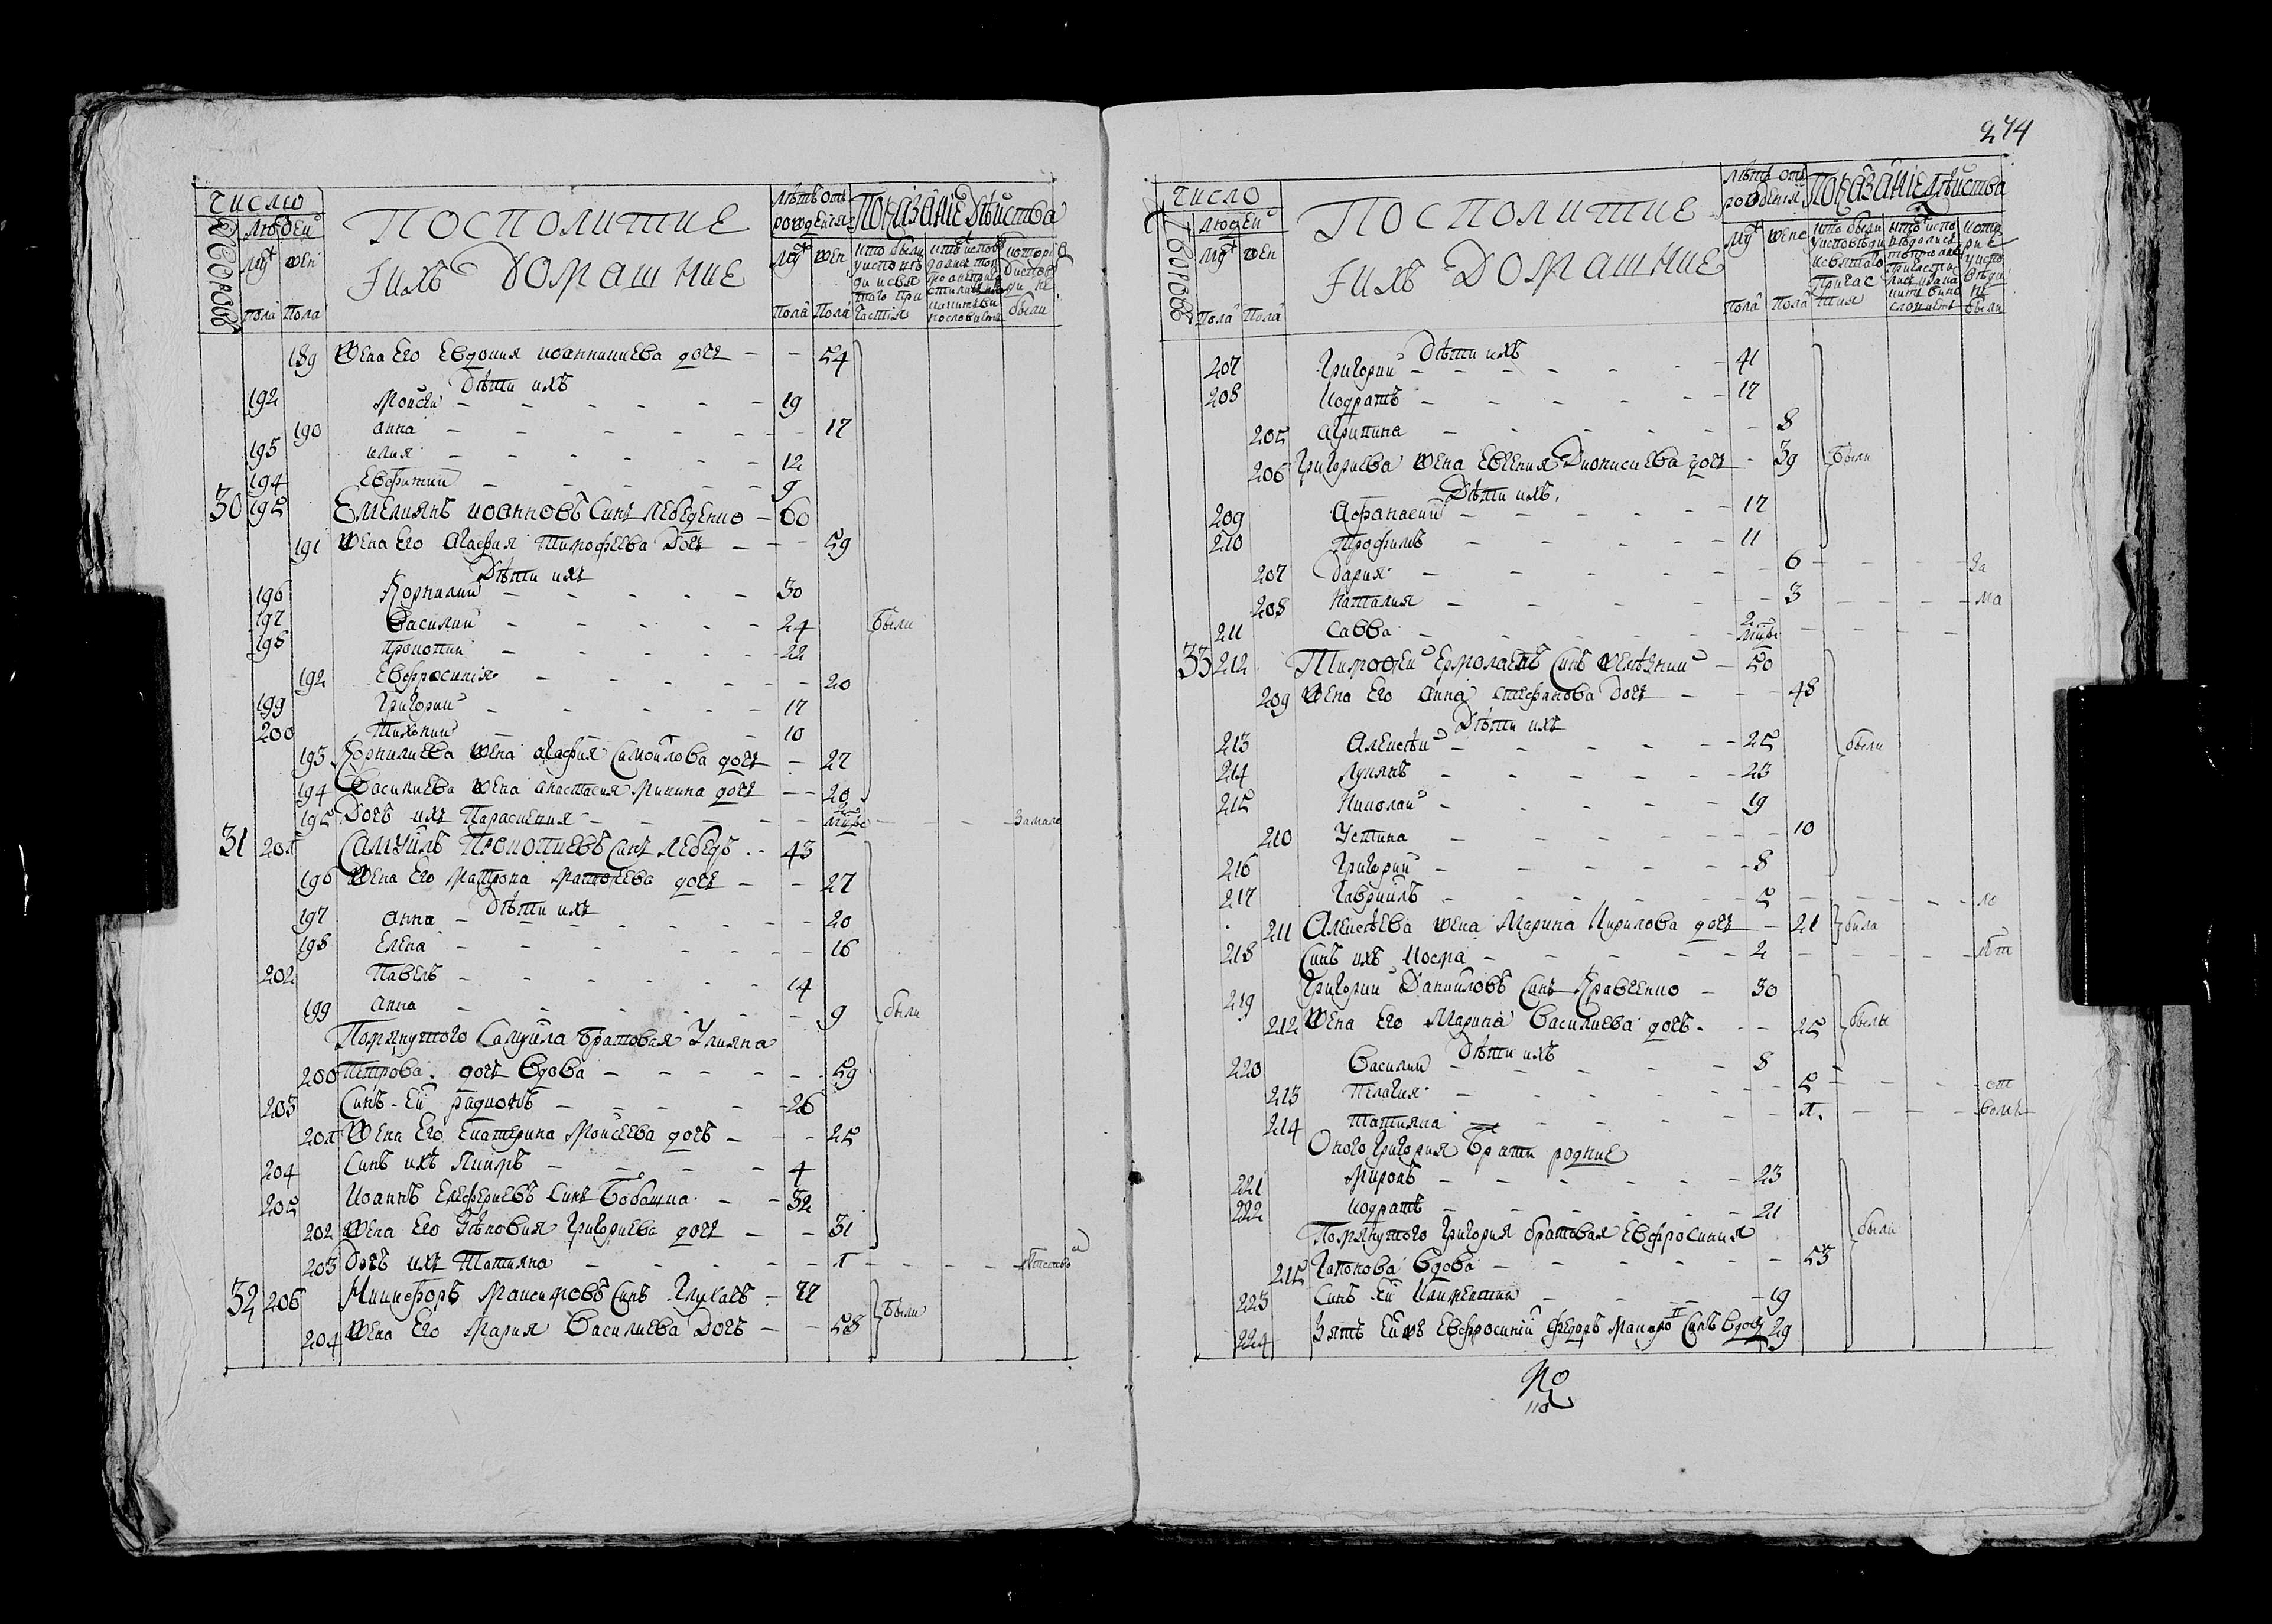 число
дворовъ
людей
муж
жен
пола
пола
ПОСПОЛИТИЕ
И ИХЪ ДОМАШНИЕ
лѣтъ отъ
рождения
муж
жен
пола
пола
ПОКАЗАНИЕ ДѢЙСТВА
были
189 жена Его Евдокия иоанникиева дочь - - 54
Дѣти ихъ
192 Моисей - 19
190 анна - 17
193 илия - 12
194 Евфимий - 9
30 195 Емелиянъ иоанновъ Синъ лебеденко - 60
191 жена Его Агафия Тимофеева Дочь - 59
Дѣти ихъ
196 Корнилий - 30
197 Василий - 24 были
198 прокопий - 22
192 Евфросиния - 20
199 Григорий - 17
200 Тихоний - 10
193 Корнилиева жена агафия Самойлова дочь - 27
194 Василиева жена анастасия Минина дочь - 20
195 Дочь ихъ Параскевия - Замало
31 201 Самуилъ Прокопиевъ Синъ лебедь - 43
196 жена Его Матрона Матфеева дочь - 27
Дѣти ихъ
197 анна - 20
198 Елена - 16
202 Павелъ - 14
199 анна - 9 были
Помянутого Самуила братовая Улияна
200 Петрова дочь Вдова - 59
203 Синъ Ей радионъ - 26
201 жена Его Екатерина Моисеева дочь - 25
204 Синъ ихъ - 4
205 Иоаннъ Елефериевъ Синъ Бобошка - 32
202 жена Его Зѣновия Григориева дочь - 31
203 Дочъ ихъ Татияна - 1
32 206 Никифоръ Максимовъ Синъ Глухавъ - 77
204 жена Его Мария Василиева Дочъ - 58 были
274
число
дворовъ
людей
муж
жен
пола
пола
ПОСПОЛИТИЕ
И ИХЪ ДОМАШНИЕ
лѣтъ отъ
рождения
муж
женс
пола
пола
ПОКАЗАНИЕ ДѢЙСТВА
Дѣти ихъ
207 Григорий - 41
208 Кодратъ - 17
205 агрипина - 8
206 Григориева жена Евгения Дионисиева дочь - 39 были
Дѣти ихъ
209 Афанасий - 17
210 Трофимъ - 11
207 Дария - 6 - За
208 Наталия - 3 - ма
211 Савва - 2
33 212 Тимофей Ермолаевъ Синъ желѣзний - 50
209 жена Его анна стефанова дочь - 48
Дѣти ихъ
213 Алексѣй - 25 были
214 Лукянъ - 23
215 Николай - 19
210 Устина - 10
216 Григорий - 8
217 Гавриилъ - 5 - ло
211 Алексѣева жена Марина Кирилова дочь - 21 была
218 Синъ ихъ Косма - 2 - лѣт
219 Григорий Данииловъ Синъ Кравченко - 30
212 жена Его Марина Василиева дочь - 25 были
Дѣти ихъ
220 Василий - 8
213 Пелагия - 5 - ст
214 Татияна - 1 - вомъ
Оного Григория Брати родние
221 Миронъ - 23
222 кодратъ - 21
Помянутого Григория братовая Евфросиния были
215 Гапонова Вдова - 53
223 Синъ Ей Климентий - 19
224 Зять Ей жъ Евфросинии Федоръ Синъ Вдовъ 29
No